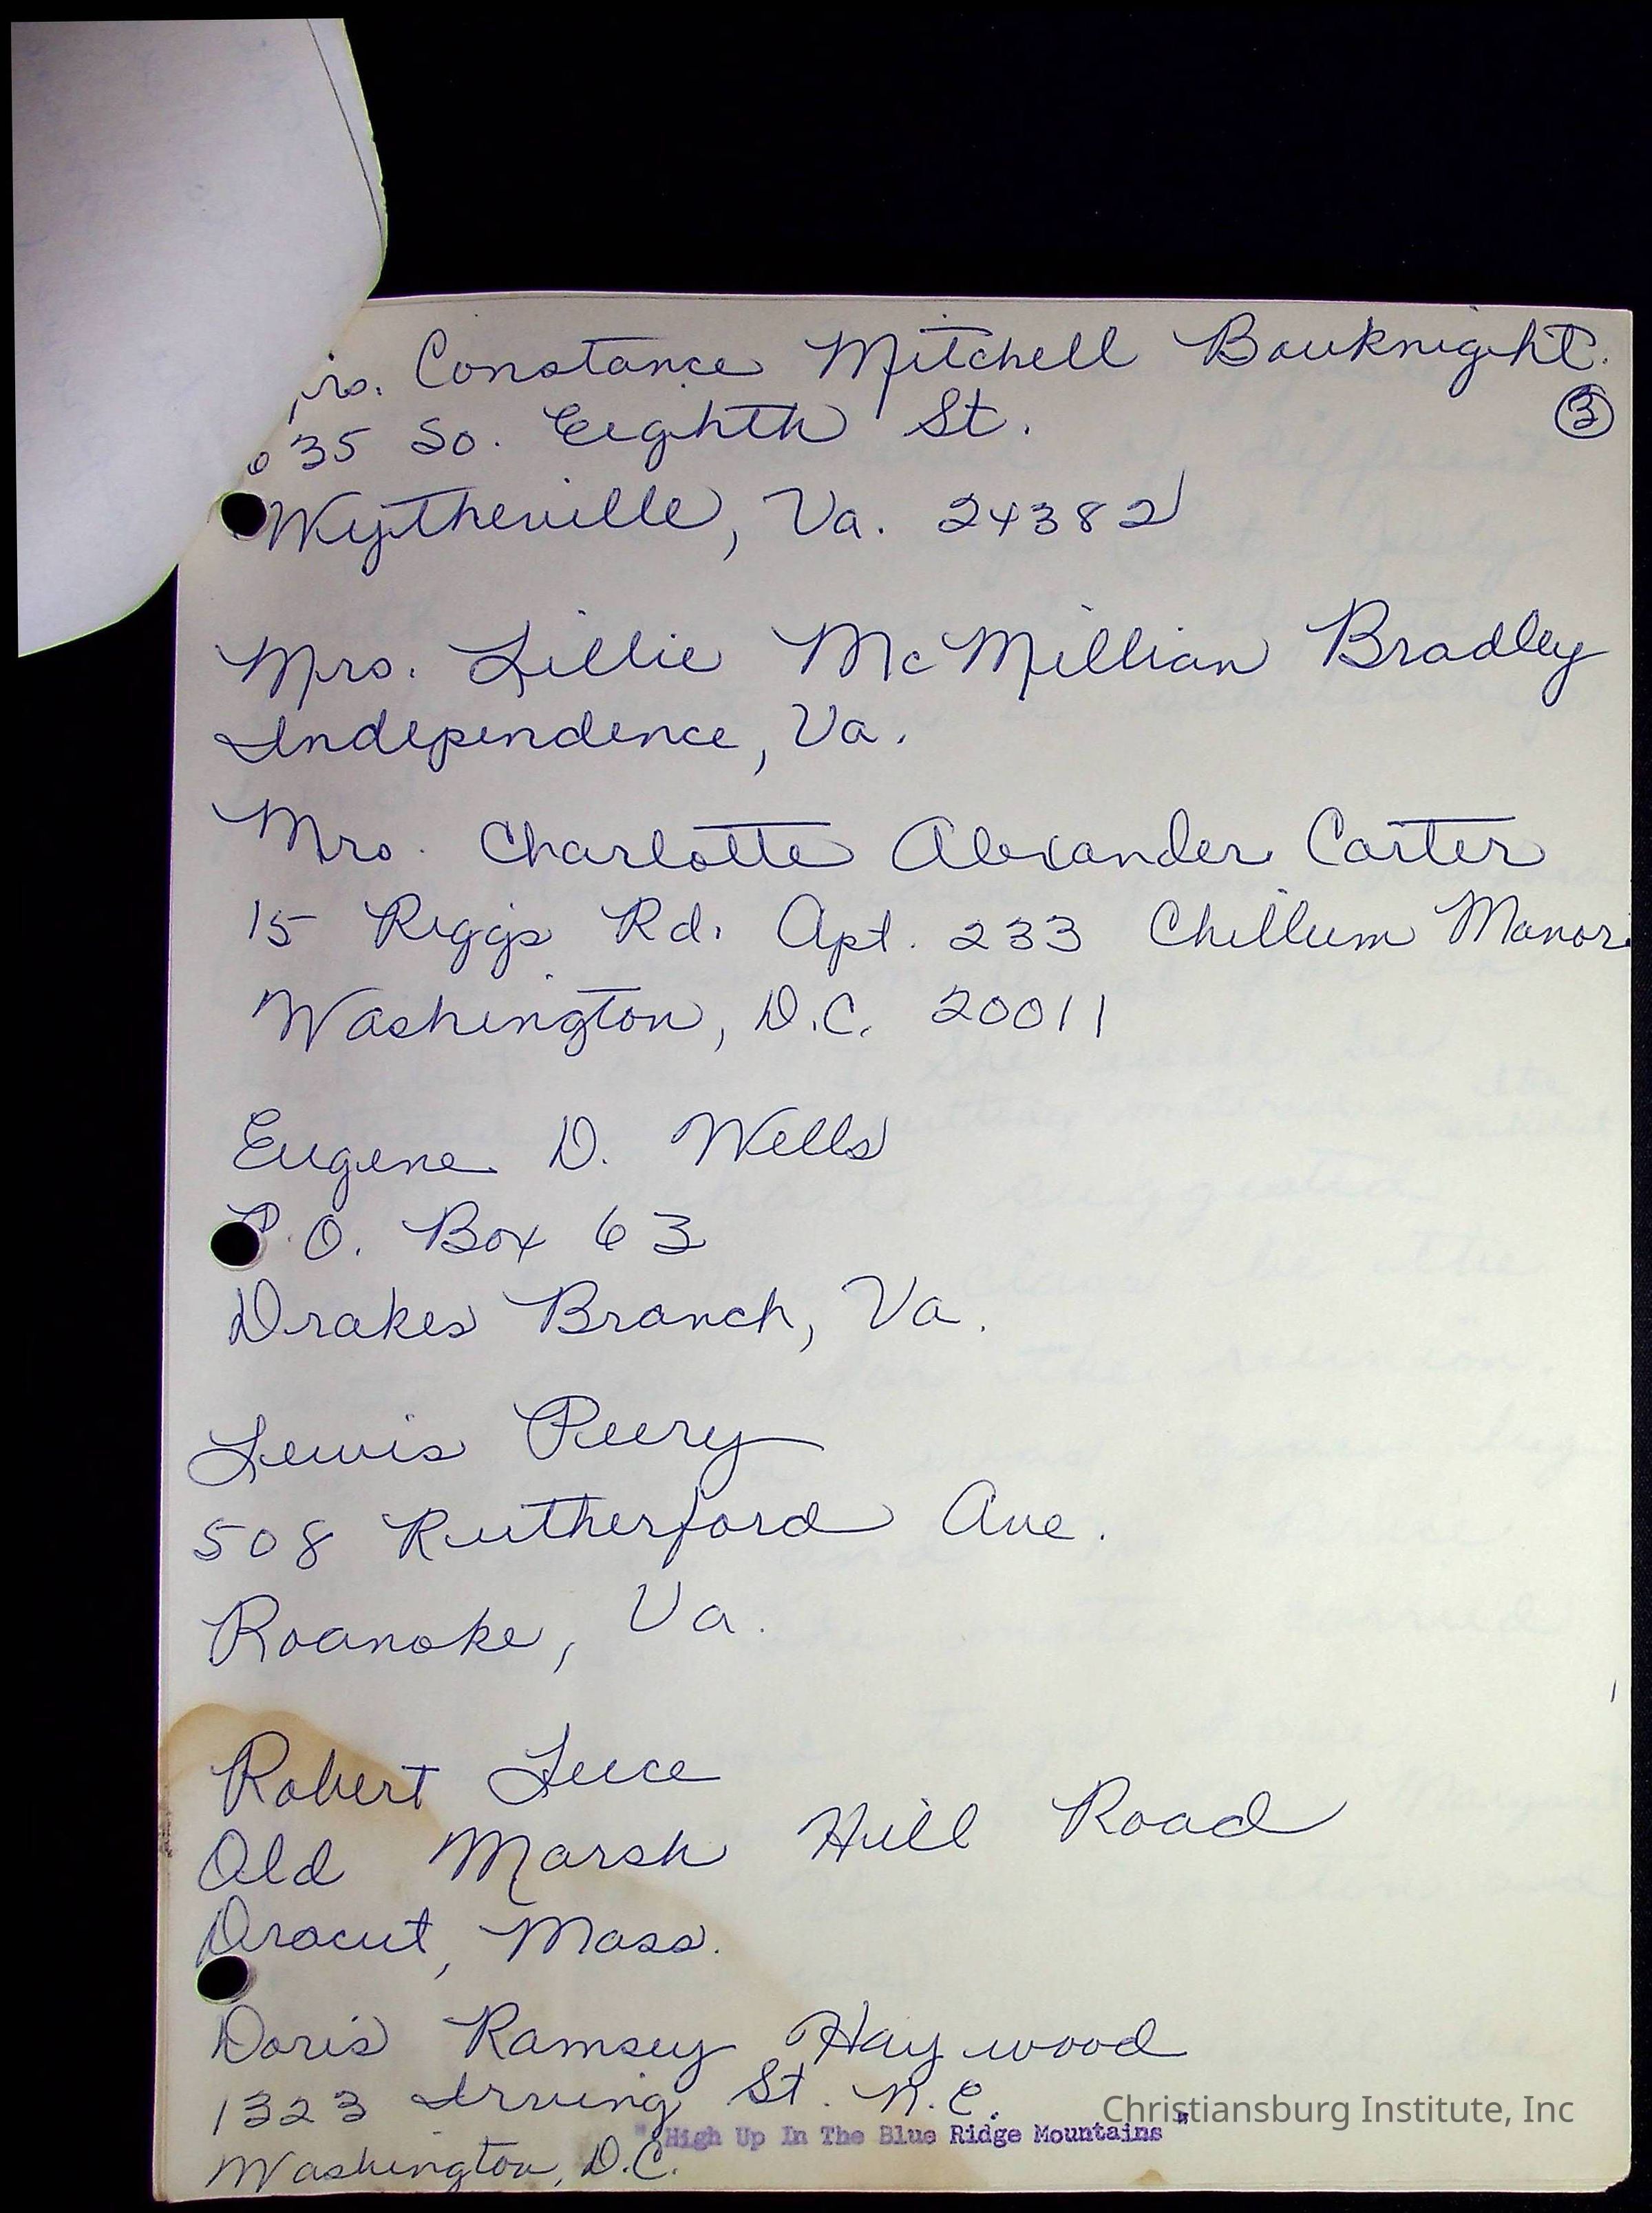 Mrs. Constance Mitchell Bouknight.
③
635 So. Eighth St.
Wytheville, Va. 24382
Mrs. Lillie McMillian Bradley
Independence, Va.
Mrs. Charlotte Alexander Carter
15 Riggs Rd. Apt. 233 Chillum Manor
Washington, D.C. 20011
Eugene D. Wells
P.O. Box 63
Drakes Branch, Va.
Lewis Peery
508 Rutherford Ave.
Roanoke, Va.
Robert Luce
Old Marsh Hill Road
Dracut, Mass.
Doris Ramsey Haywood
1323 Irving St. N.E.
Christiansburg Institute, Inc
"High Up In The Blue Ridge Mountains"
Washington, D.C.